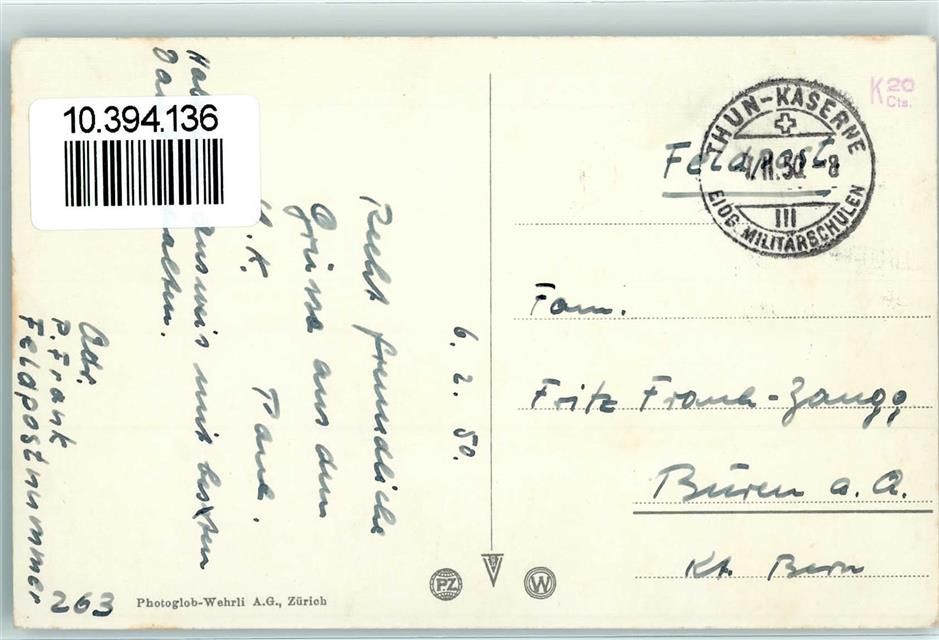 10.394.136
6. 2. 50.
Recht freundliche
Grüsse aus dem
W.K. Paul.
mit besten
Adr.
P. Frank
Feldpostnummer
263
Photoglob-Wehrli A.G., Zürich
PZ
W
K 20
Cts.
THUN-KASERNE
50. -8
III
EIDG. MILITÄRSCHULEN
Feldpost
Fam.
Fritz Frank-Zaugg
Büren a. A.
Kt. Bern